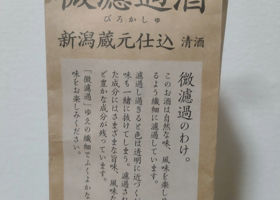 微濾過酒
びろかしゅ
新潟蔵元仕込 清酒
微濾過のわけ。
このお酒は自然な味、風味を楽し
るよう繊細に濾過しています。
濾過し過ぎると色は透明に近づく
味も一緒に抜けてしまう。濾過され
た成分にはさまざまな旨味、風味な
ど豊かな成分が残っています。
「微濾過」ゆえの繊細でふくよかな
味をお楽しみください。